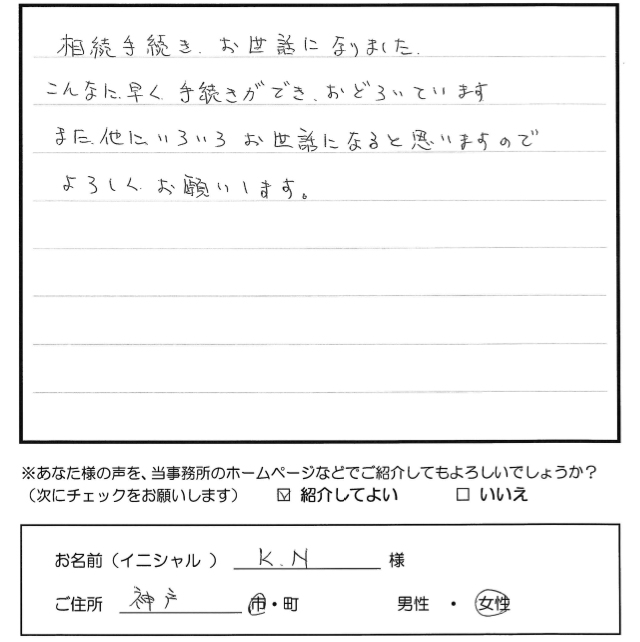 相続手続き、お世話になりました.
こんなに、早く手続きができ、おどろいています
また、他にいろいろお世話になると思いますので
よろしくお願いします。
※あなた様の声を、当事務所のホームページなどでご紹介してもよろしいでしょうか？
（次にチェックをお願いします） ☑ 紹介してよい □ いいえ
お名前（イニシャル ） K.N 様
ご住所 神戸 市・町 男性 ・ 女性